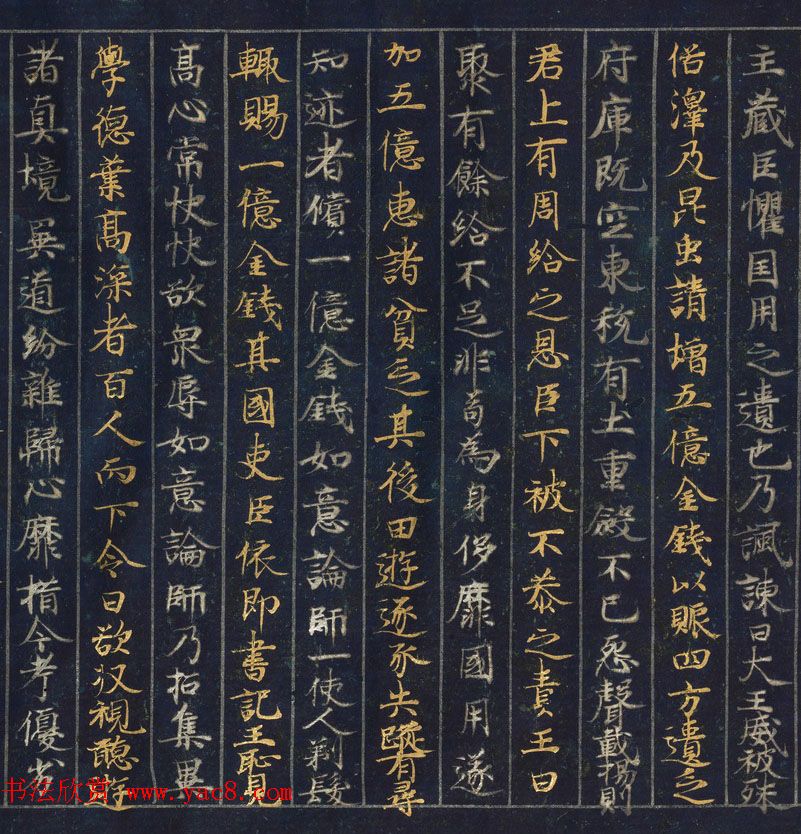 主藏臣懼国用之遺也乃諷諫曰大王威被殊
俗澤及昆虫請增五億金錢以賑四方遺乏
府庫既空東稅有土重斂不已怨聲載揚則
君上有周給之恩臣下被不恭之責王曰
聚有餘給不足非苟為身侈靡國用遂
加五億惠諸貧乏其後田遊逐豕失蹤有尋
知迹者償一億金錢如意論師一使人剃髮
輒賜一億金錢其國史臣依即書記王恥見
高心常怏怏欲衆辱如意論師乃招集異
學德業高深者百人而下令曰欲收視聽遊
諸真境異道紛雜歸心靡措今考優劣
书法欣赏 www.yac8.com